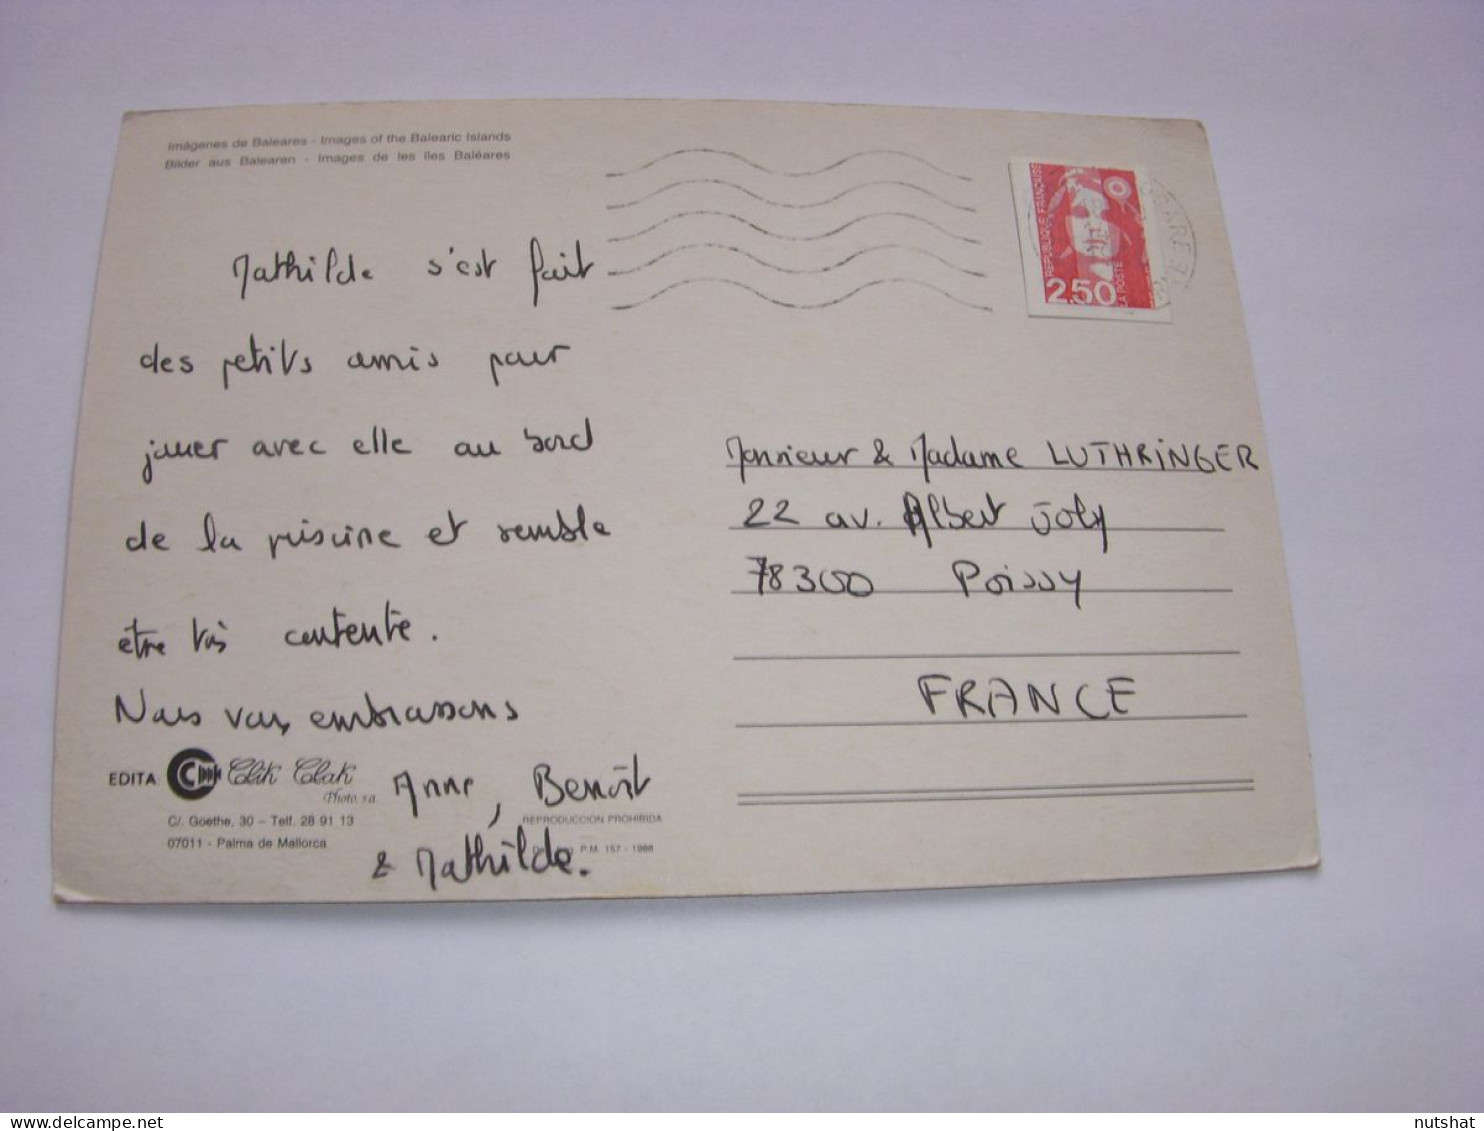 Imágenes de Baleares - Images of the Balearic Islands
Bilder aus Balearen - Images de les îles Baléares
Mathilde s'est fait
des petits amis pour
jouer avec elle au bord
de la piscine et semble
être très contente.
Nous vous embrassons
Anne, Benoît
& Mathilde.
EDITA: Clik Clak
Photo, s.a.
C/. Goethe, 30 - Telf. 28 91 13
07011 - Palma de Mallorca
REPRODUCCION PROHIBIDA
P.M. 157 - 1988
REPUBLIQUE FRANÇAISE
2,50
LA POSTE
Monsieur & Madame LUTHRINGER
22 av. Albert Joly
78300 Poissy
FRANCE
nutshat